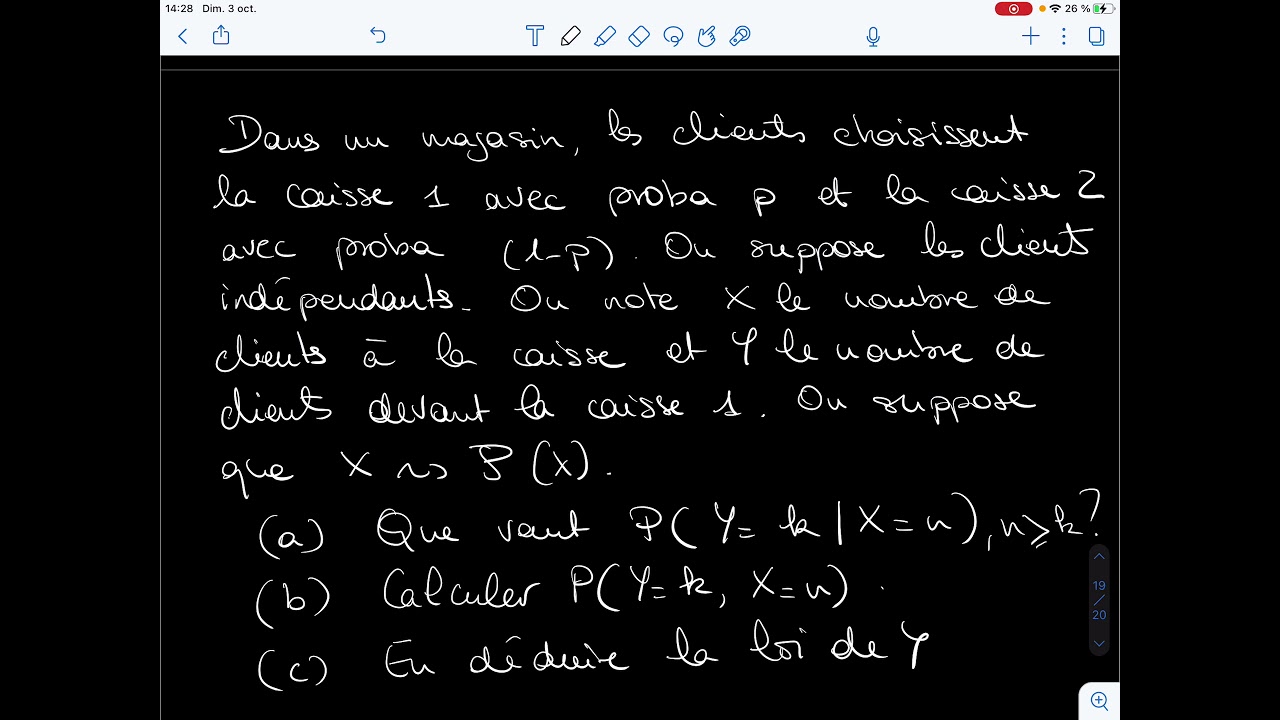 14:28 Dim. 3 oct.
26 %
Dans un magasin, les clients choisissent
la caisse 1 avec proba p et la caisse 2
avec proba (1-p). On suppose les clients
indépendants. On note X le nombre de
clients à la caisse et Y le nombre de
clients devant la caisse 1. On suppose
que X ~ P(λ).
(a) Que vaut P(Y=k | X=n), n≥k?
(b) Calculer P(Y=k, X=n).
(c) En déduire la loi de Y
19
/
20